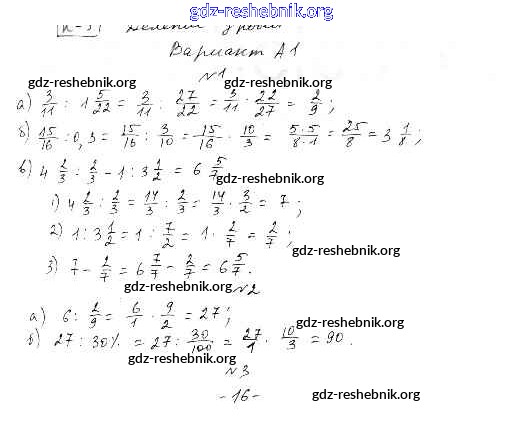 gdz-reshebnik.org
К-9. Деление дробей
Вариант А1
№1
gdz-reshebnik.org gdz-reshebnik.org
а) 3/11 : 1 5/22 = 3/11 : 27/22 = 3/11 · 22/27 = 2/9;
б) 15/16 : 0,3 = 15/16 : 3/10 = 15/16 · 10/3 = 5·5/8·1 = 25/8 = 3 1/8;
gdz-reshebnik.org
в) 4 2/3 : 2/3 - 1 : 3 1/2 = 6 5/7
gdz-reshebnik.org
1) 4 2/3 : 2/3 = 14/3 : 2/3 = 14/3 · 3/2 = 7;
2) 1 : 3 1/2 = 1 : 7/2 = 1 · 2/7 = 2/7;
gdz-reshebnik.org
3) 7 - 2/7 = 6 7/7 - 2/7 = 6 5/7.
gdz-reshebnik.org
№2
а) 6 : 2/9 = 6/1 · 9/2 = 27;
gdz-reshebnik.org
б) 27 : 30% = 27 : 30/100 = 27/1 · 10/3 = 90.
gdz-reshebnik.org
№3
- 16 -
gdz-reshebnik.org